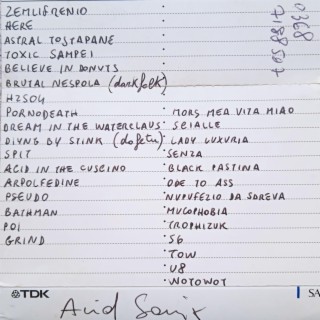 ZEMLIFRENIO
AERE
ASTRAL TOSTAPANE
TOXIC SAMPEI
BELIEVE IN DONUTS
BRUTAL NESPOLA (darkfolk)
H2SO4
PORNODEATH · MORS MEA VITA MIAO
DREAM IN THE WATERCLAUS · SCIALLE
DIYNG BY STINK LADY LUXURIA
SPIT · SENZA
ACID IN THE CUSCINO · BLACK PASTINA
ARPOLFEDINE · ODE TO ASS
PSEUDO · NUPUFEZIO DA SOREVA
BATHMAN · MUCOPHOBIA
POI · TROPHIZUK
GRIND · S6
· TOW
· U8
· WOTOWOT
TDK
SA
Acid